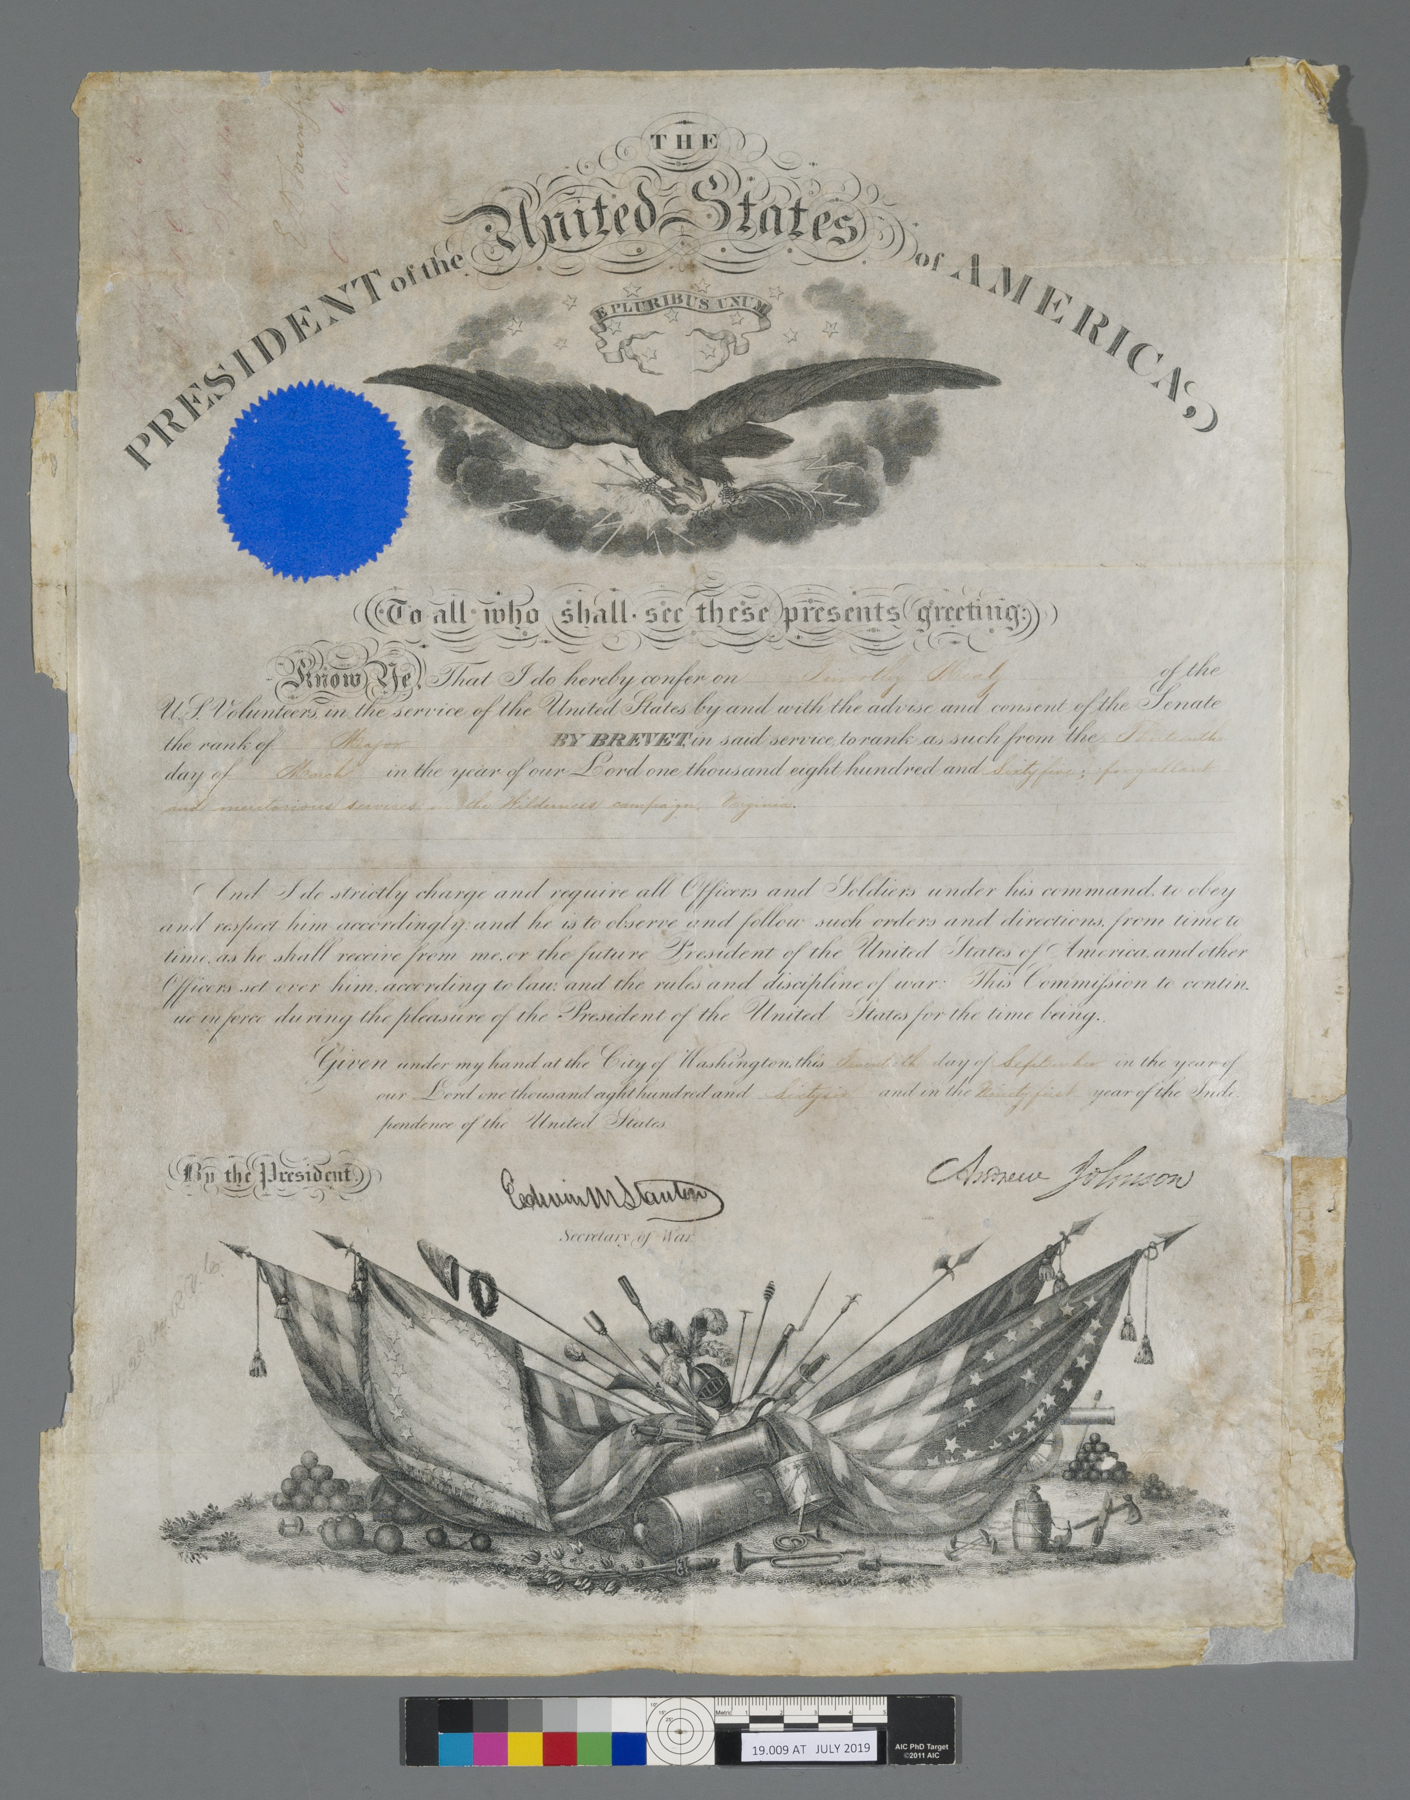 THE
United States
PRESIDENT of the
of AMERICA,
E PLURIBUS UNUM
To all who shall see these presents greeting:
Know Ye, That I do hereby confer on Healy of the
U.S. Volunteers, in the service of the United States by and with the advise and consent of the Senate
the rank of Major BY BREVET, in said service, to rank as such from the
day of March in the year of our Lord one thousand eight hundred and Sixty five; for gallant
and meritorious services in the Wilderness campaign, Virginia.
And I do strictly charge and require all Officers and Soldiers under his command, to obey
and respect him accordingly: and he is to observe and follow such orders and directions, from time to
time, as he shall receive from me, or the future President of the United States of America, and other
Officers set over him, according to law, and the rules and discipline of war: This Commission to contin-
ue in force during the pleasure of the President of the United States for the time being.
Given under my hand at the City of Washington, this day of September in the year of
our Lord one thousand eight hundred and Sixty six and in the Ninety first year of the Inde-
pendence of the United States.
By the President.
Edwin M Stanton
Andrew Johnson
Secretary of War.
Metric 1 2 3 4 5
19.009 AT JULY 2019
AIC PhD Target
©2011 AIC